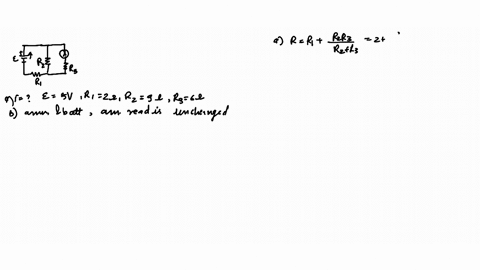 ε
R2
R3
R1
a) r = ? ε = 5V , R1 = 2Ω, R2 = 9Ω , R3 = 6Ω
b) amm & batt , amm read is unchanged
a) R = R1 + R2R3 / R2+R3 = 2+